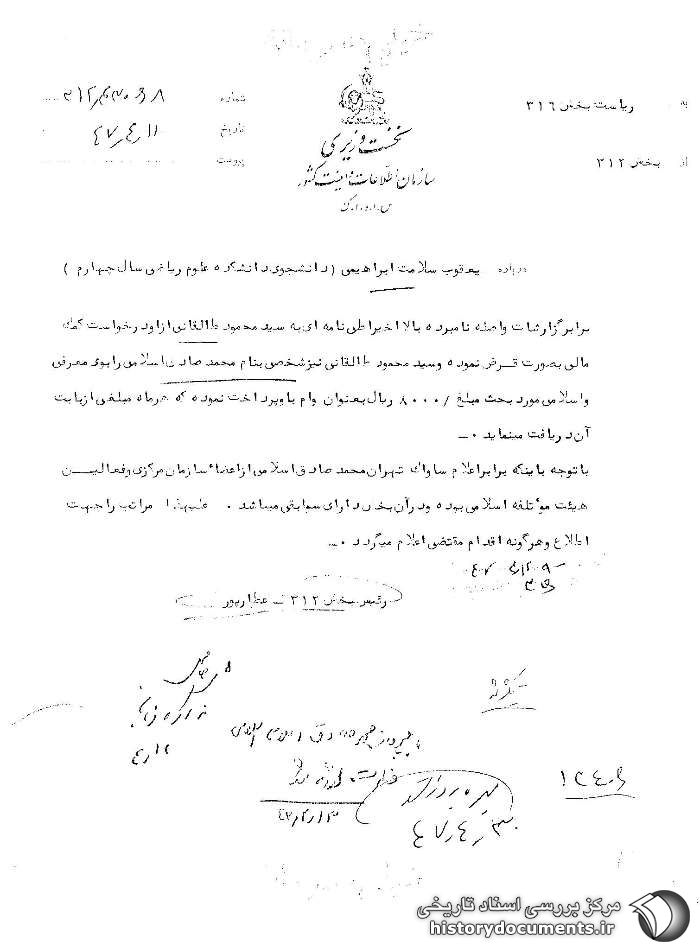 به ریاست بخش ۳۱۶
از بخش ۳۱۲
نخست وزیری
سازمان اطلاعات و امنیت کشور
س.ا.و.ا.ک
شماره
تاریخ ۴۷/۴/۱۱
پیوست
درباره یعقوب سلامت ابراهیمی (دانشجوی دانشکده علوم ریاضی سال چهارم)
برابر گزارشات واصله نامبرده بالا اخیرا طی نامه ای به سید محمود طالقانی از او درخواست کمک
مالی بصورت قرض نموده و سید محمود طالقانی نیز شخصی بنام محمد صادق اسلامی را بوی معرفی
و اسلامی مورد بحث مبلغ /۸۰۰۰ ریال بعنوان وام باو پرداخت نموده که هرماه مبلغی از بابت
آن دریافت مینماید ۰ــ
با توجه باینکه برابر اعلام ساواک تهران محمد صادق اسلامی از اعضاء سازمان مرکزی و فعالیــن
هیئت موتلفه اسلامی بوده و در آن بخش دارای سوابقی میباشد ۰ علیهذا مراتب را جهت
اطلاع و هرگونه اقدام مقتضی اعلام میگردد ۰ــ
رئیس بخش ۳۱۲ ــ عطارپور
محمد صادق اسلامی
۴۷/۴/۱۳
۴۷/۴/۳۰
مرکز بررسی اسناد تاریخی
historydocuments.ir